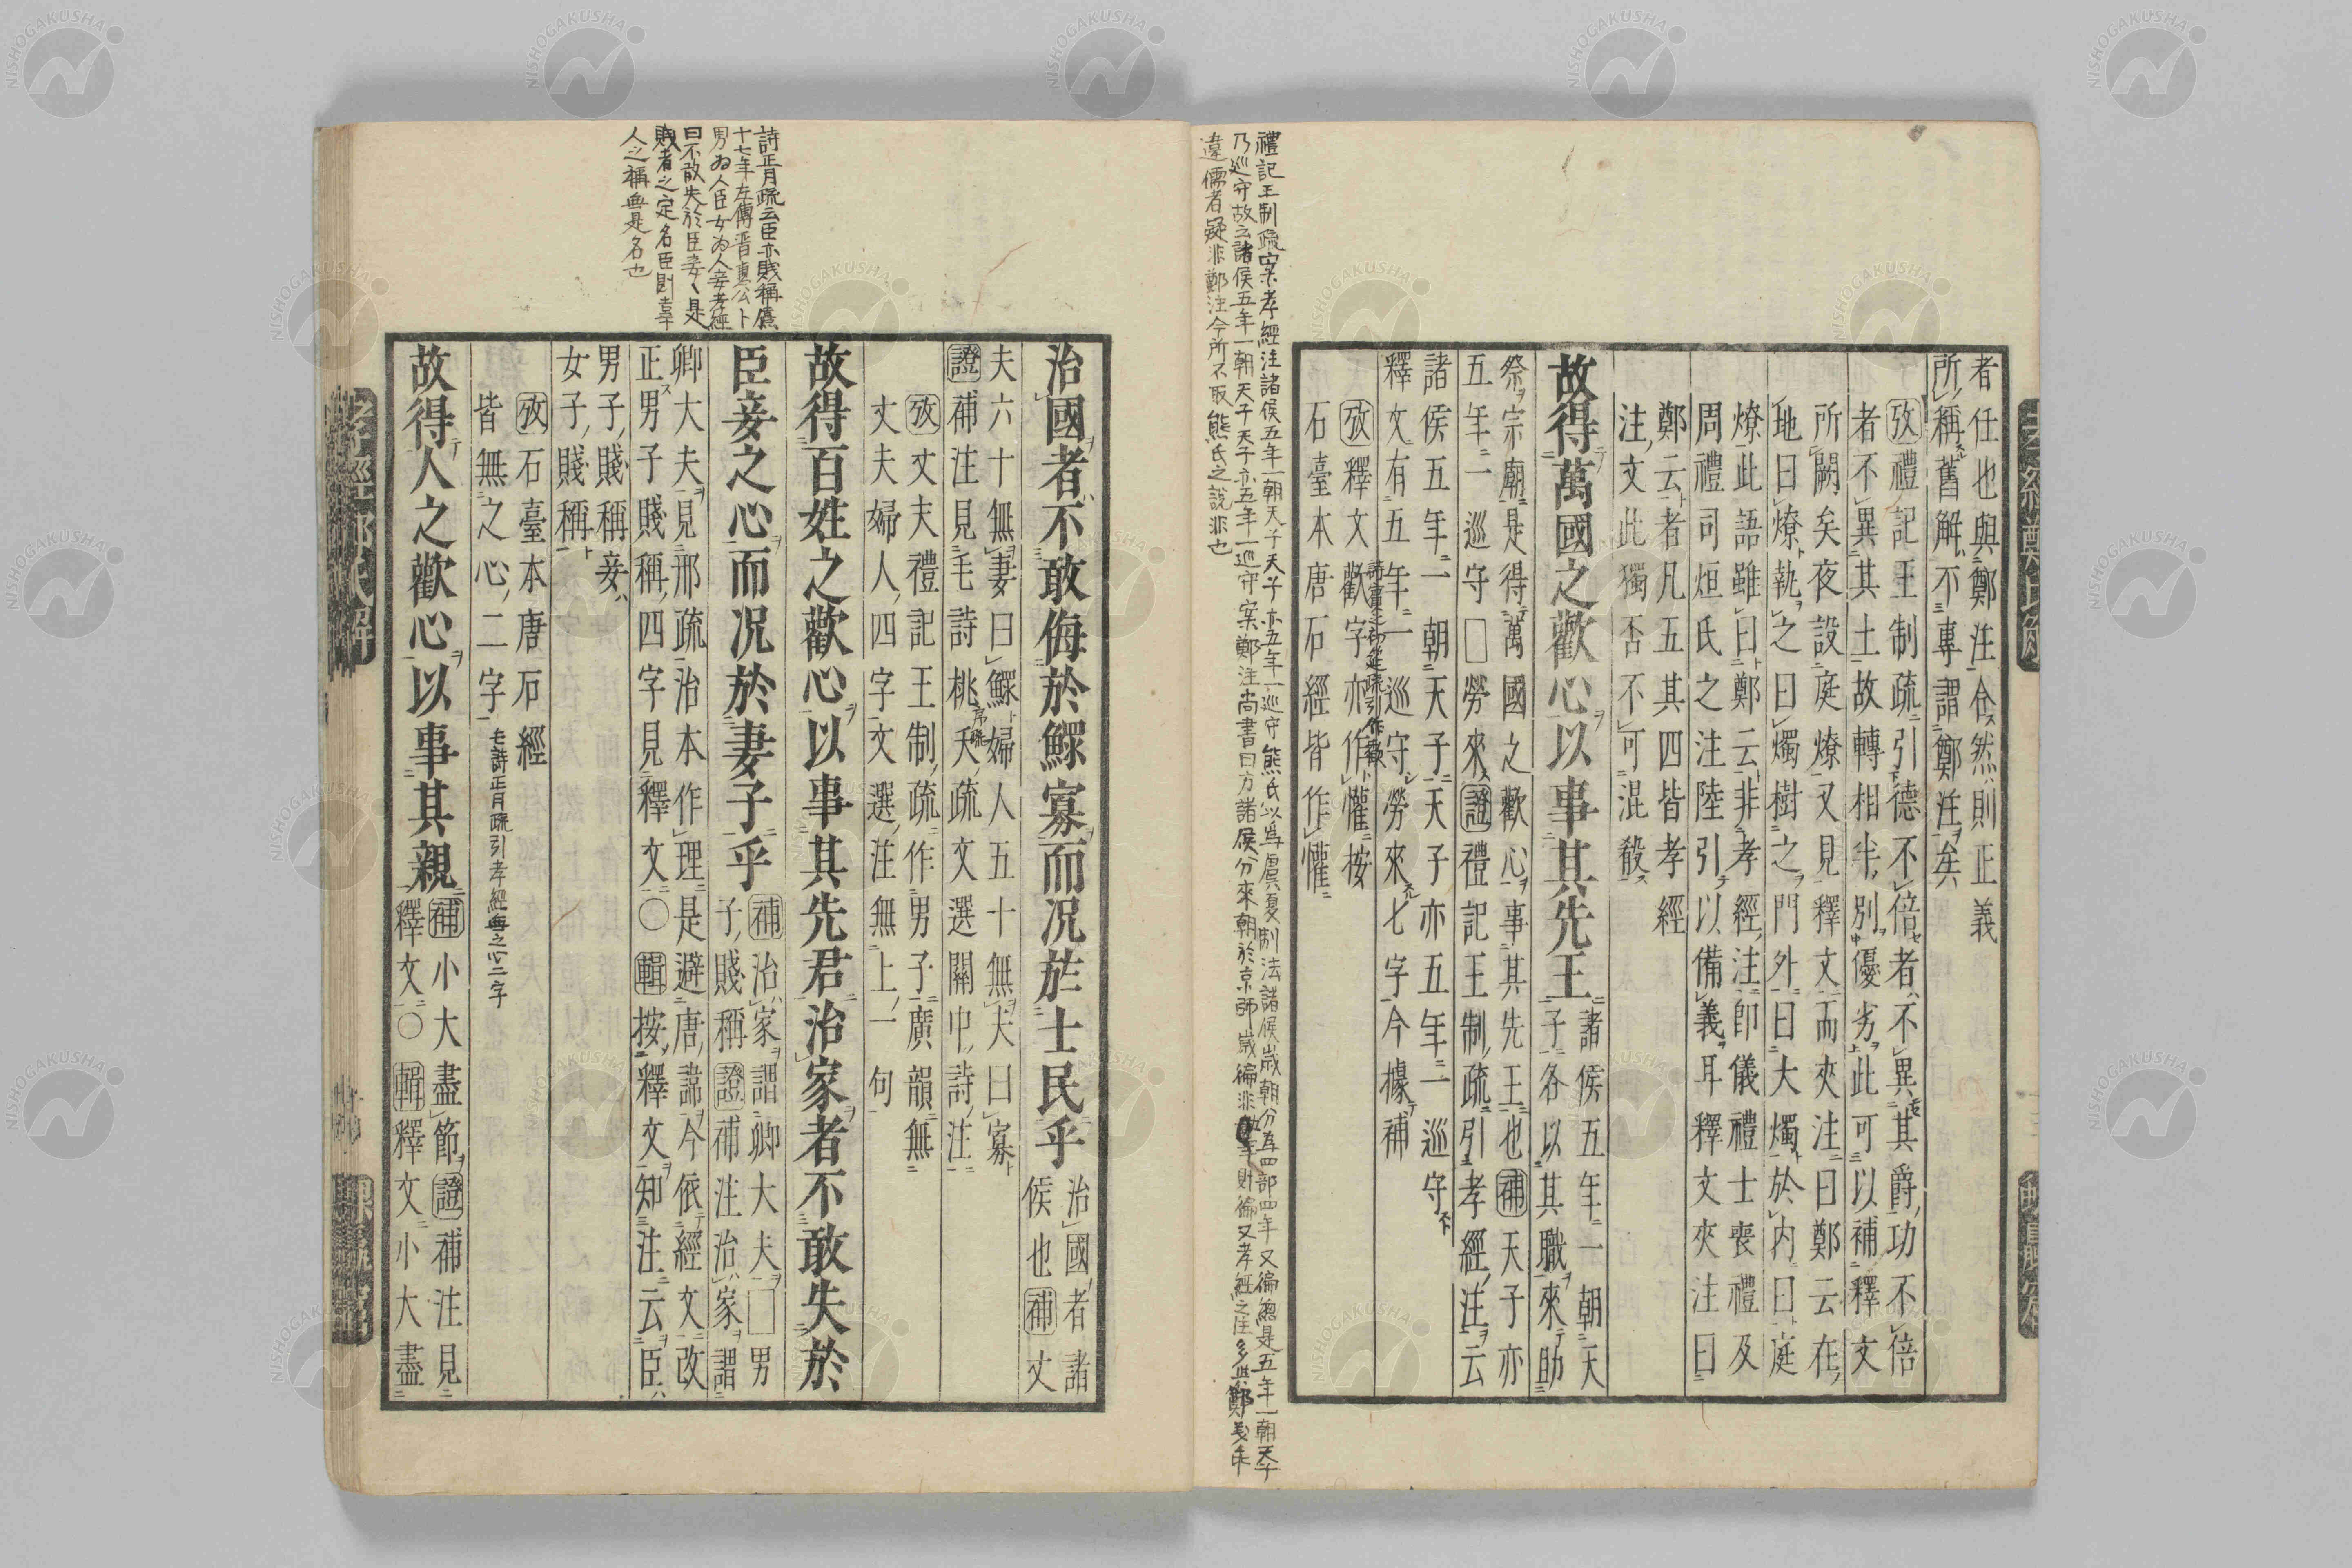 者仕也與鄭注合然則正義
所稱舊解不專謂鄭注矣
攷禮記王制疏引德不倍者不異其爵功不倍
者不異其土故轉相半別優劣此可以補釋文
所闕矣夜設庭燎又見釋文而夾注曰鄭云在
地曰燎執之曰燭樹之門外曰大燭於內曰庭
燎此語雖曰鄭云非孝經注即儀禮士喪禮及
周禮司烜氏之注陸引以備義耳釋文夾注曰
鄭云者凡五其四皆孝經
注文此獨否不可混殽
故得萬國之歡心以事其先王
諸侯五年一朝天
子各以其職來助
祭宗廟是得萬國之歡心事其先王也補天子亦
五年一巡守□勞來證禮記王制疏引孝經注云
諸侯五年一朝天子天子亦五年一巡守
釋文有五年一巡守勞來七字今據補
攷釋文歡字亦作懽按
石臺本唐石經皆作懽
禮記王制疏案孝經注諸侯五年一朝天子天子亦五年一巡守熊氏以爲虞夏制法諸侯歲朝分爲四部四年又徧總是五年一朝天子
乃巡守故云諸侯五年一朝天子天子亦五年一巡守案鄭注尚書曰方諸侯分來朝於京師歲徧非五年則徧又孝經之注多與鄭義乖
違儒者疑非鄭注今所不取熊氏之說非也
治國者不敢侮於鰥寡而況於士民乎
治國者諸
侯也補丈
夫六十無妻曰鰥婦人五十無夫曰寡
證補注見毛詩桃夭疏文選關中詩注
序疏
攷丈夫禮記王制疏作男子廣韻無
丈夫婦人四字文選注無上一句
故得百姓之歡心以事其先君治家者不敢失於
臣妾之心而況於妻子乎
補治家謂卿大夫□男
子賤稱證補注治家謂
卿大夫見邢疏治本作理是避唐諱今依經文改
正男子賤稱四字見釋文○輯按釋文知注云臣
男子賤稱妾
女子賤稱
攷石臺本唐石經
皆無之心二字
毛詩正月疏引孝經無之心二字
故得人之歡心以事其親
補小大盡節證補注見
釋文○輯釋文小大盡
詩正月疏云臣亦賤稱僖
十七年左傳晉惠公卜
男為人臣女為人妾孝經
曰不敢失於臣妾〻是
賤者之定名臣則事
人之稱無是名也
孝經鄭氏解